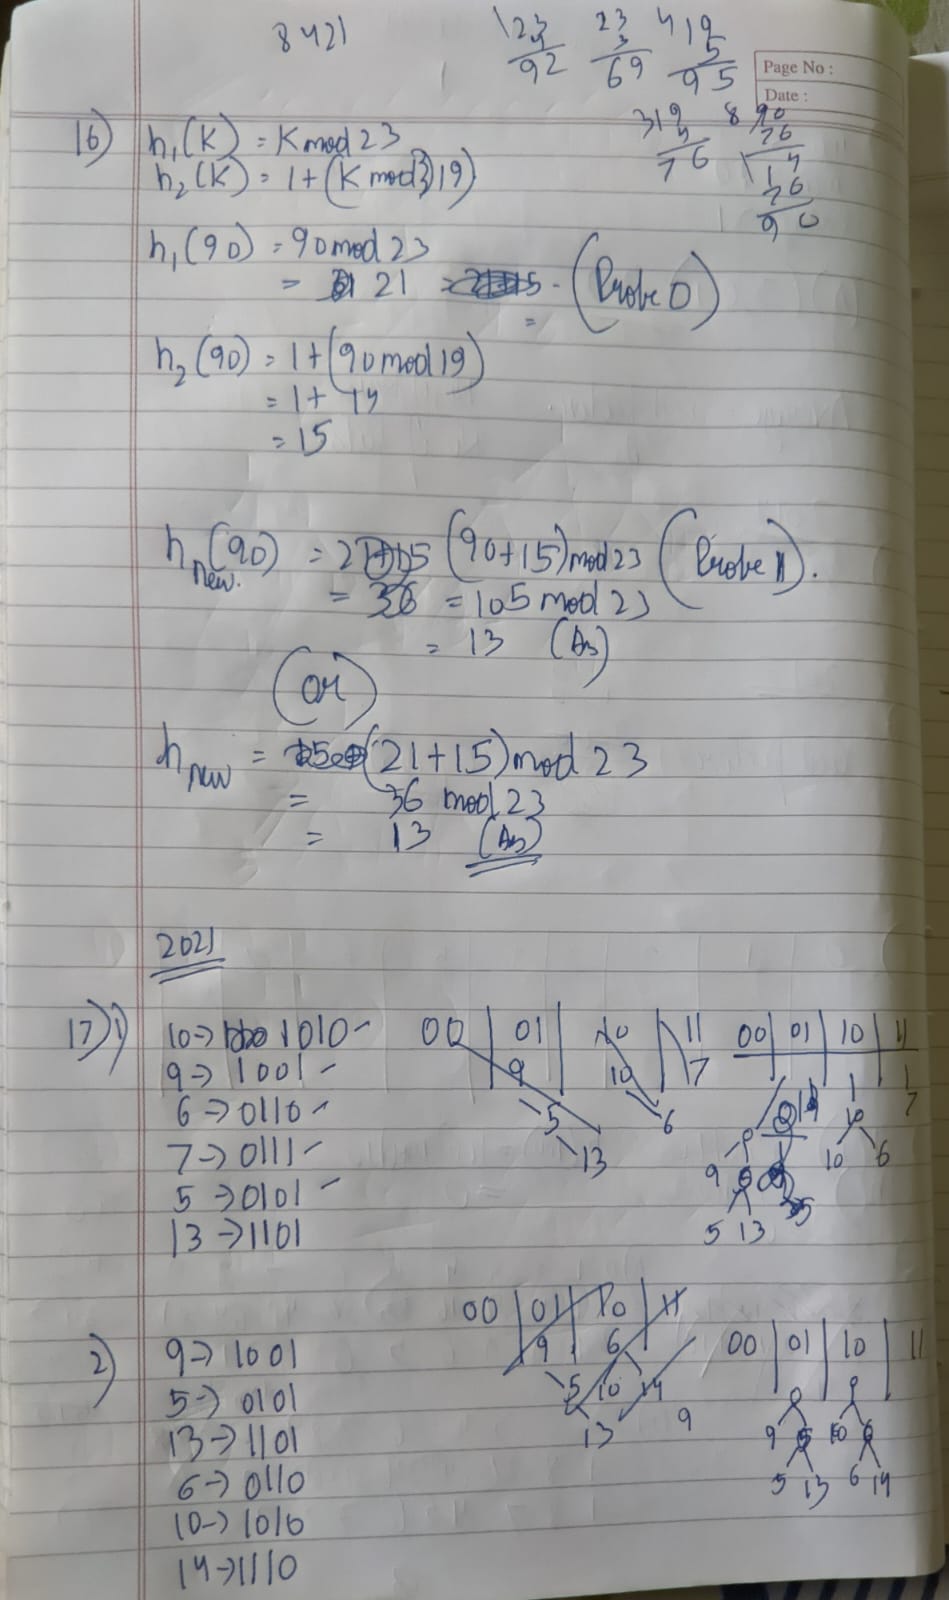 8421
123
4
92
23
3
69
419
5
95
Page No :
Date :
319
4
76
8 90
76
14
76
90
16) h₁(K) = K mod 23
h₂(K) = 1+(K mod 19)
h₁(90) = 90 mod 23
= 21 (Probe 0)
=
h₂(90) = 1+(90 mod 19)
= 1+ 14
= 15
h new. (90) = (90+15) mod 23 (Probe 1).
= 36 = 105 mod 23
= 13 (As)
(or)
h new = (21+15) mod 23
= 36 mod 23
= 13 (As)
2021
17) 1) 10→ 1010
9→ 1001
6→ 0110
7→ 0111
5→ 0101
13→ 1101
00 01 10 11
9 10 7
5 6
13
00 01 10 11
7
9 10 6
5 13
2) 9→ 1001
5→ 0101
13→ 1101
6→ 0110
10→ 1010
14→ 1110
00 01 10 11
9 6
5 10 14
13 9
00 01 10 11
9 5 10 6
5 13 6 14